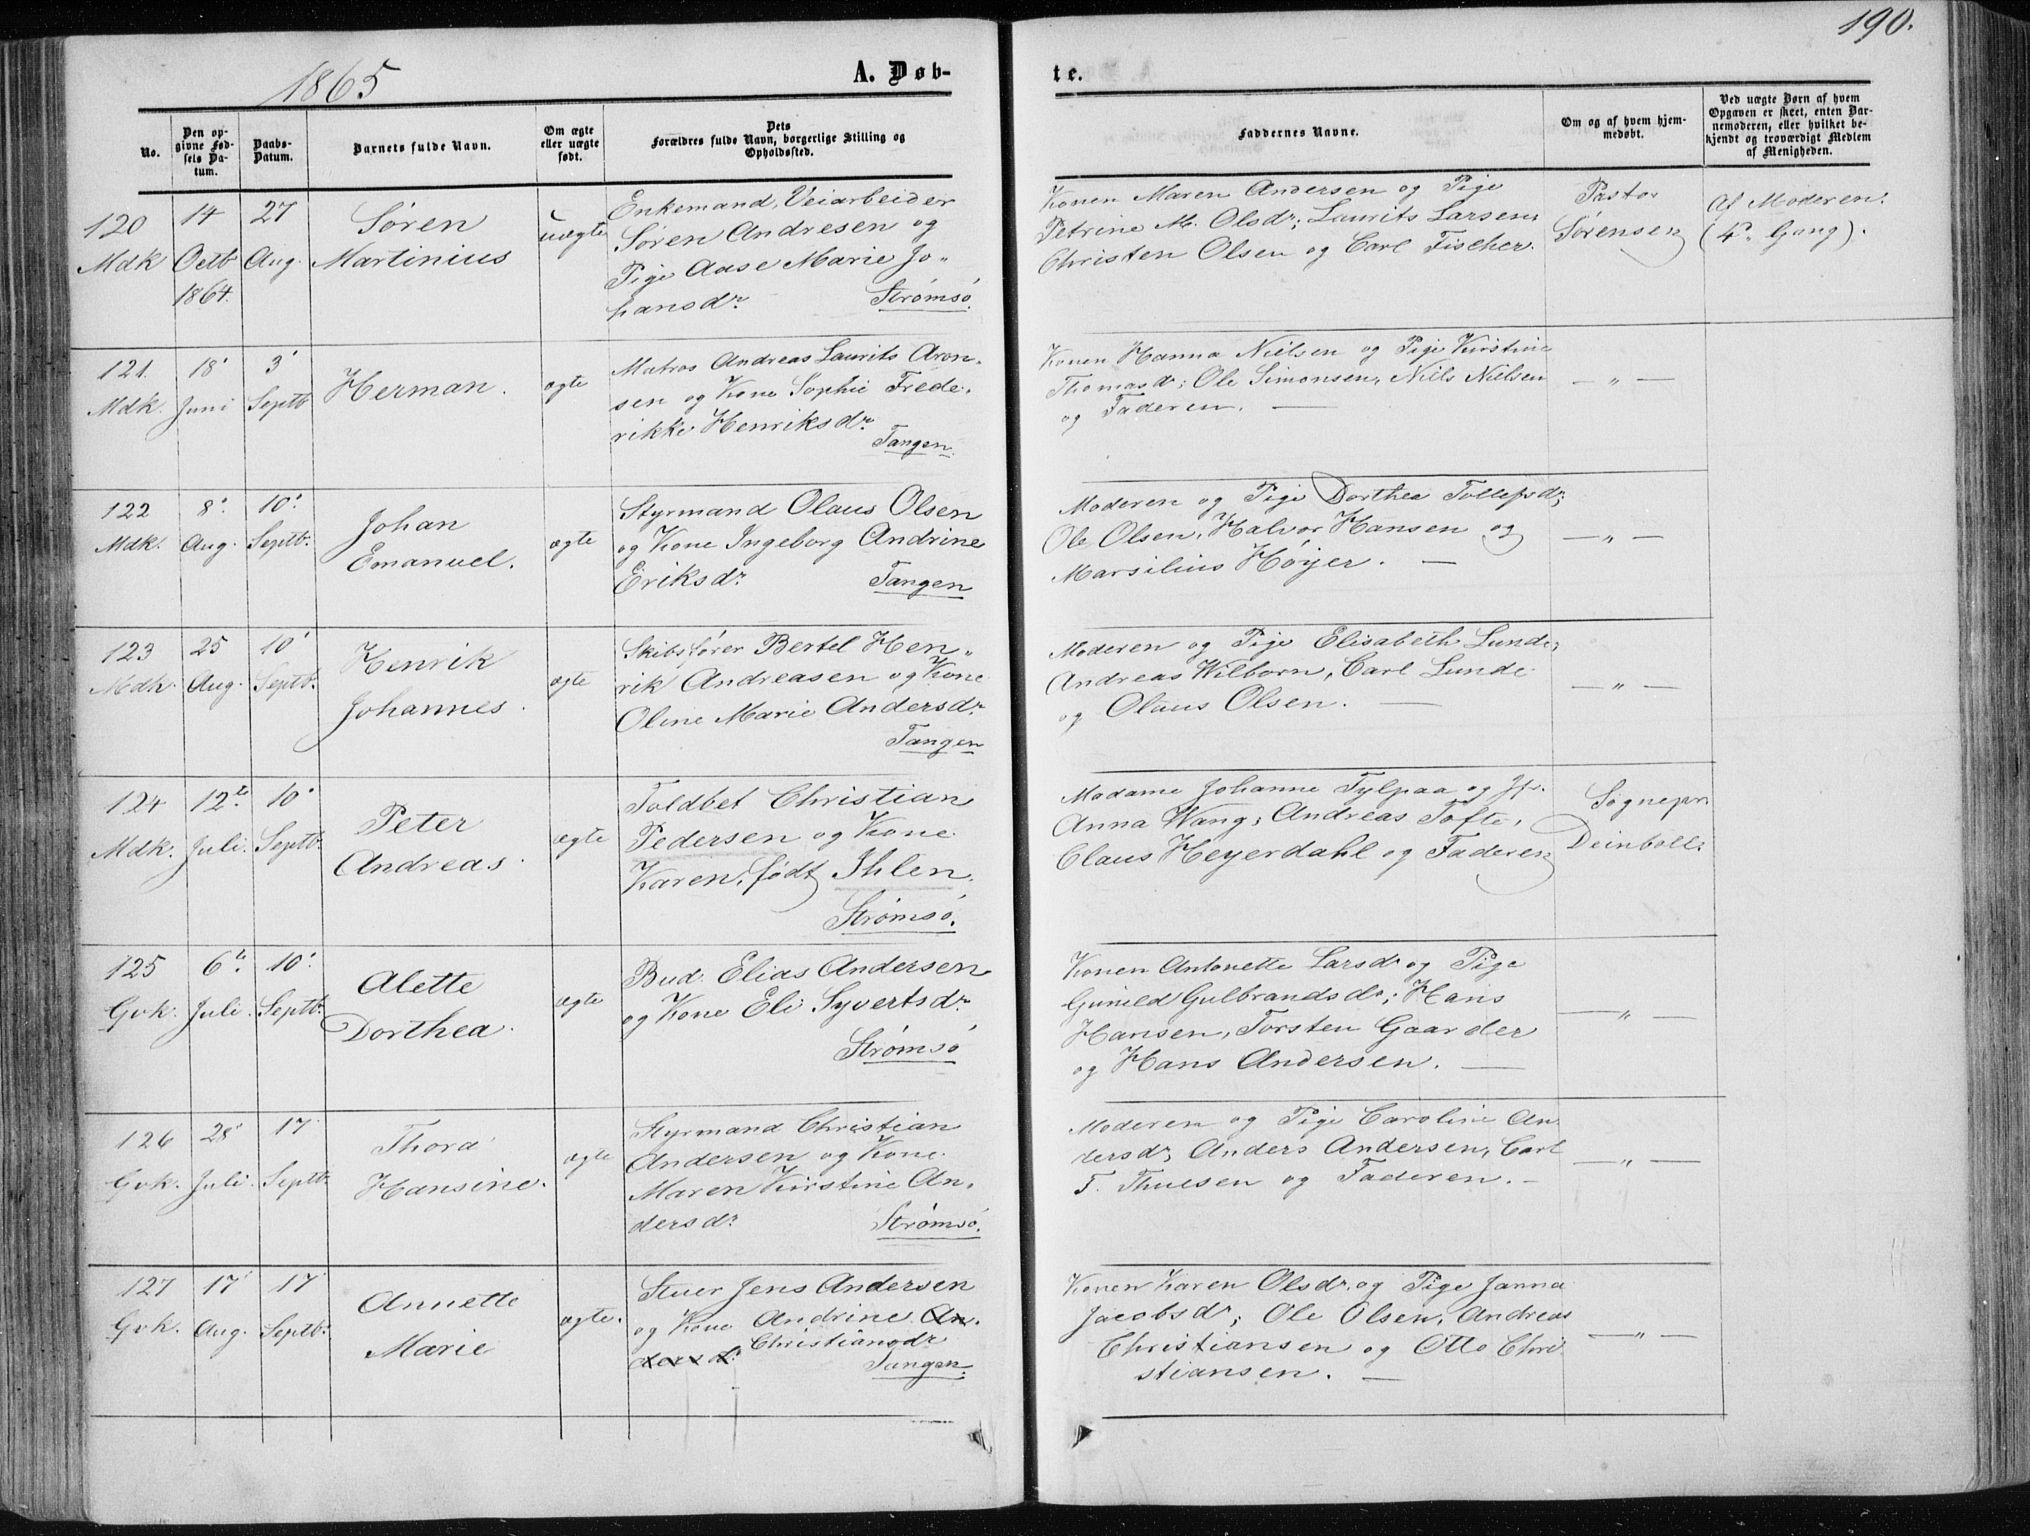 190.
1865
A. Døb-
te.
No.
Den op-
givne Fød-
sels Da-
tum.
Daabs-
Datum.
Barnets fulde Navn.
Om ægte
eller uægte
født.
Dets
Forældres fulde Navn, borgerlige Stilling og
Opholdssted.
Faddernes Navne.
Om og af hvem hjem-
medøbt.
Ved uægte Børn af hvem
Opgaven er skeet, enten Bar-
nemoderen, eller hvilket be-
kjendt og troværdigt Medlem
af Menigheden.
120
Mdk
14
Octb
1864.
27
Aug.
Søren
Martinius
uægte
Enkemand, Veiarbeider
Søren Andresen og
Pige Aase Marie Jo-
hansdr
Strømsø.
Konen Maren Andersen og Pige
Petrine M. Olsdr; Laurits Larsen,
Christen Olsen og Carl Fischer.
Pastor
Sørensen
af Moderen.
(4de Gang).
121.
Mdk.
18
Juni
3
Septb
Herman.
ægte
Matros Andreas Laurits Aron-
sen og Kone Sophie Frede-
rikke Henriksdr
Tangen.
Konen Hanna Nielsen og Pige Kirstine
Thomasdr; Ole Simonsen, Niels Nielsen
og Faderen. —
— „ —
122
Mdk.
8
Aug.
10
Septb.
Johan
Emanuel.
ægte
Styrmand Olaus Olsen
og Kone Ingeborg Andrine
Eriksdr
Tangen
Moderen og Pige Dorthea Tollefsdr;
Ole Olsen, Halvor Hansen og
Marsilius Høyer. —
— „ —
123
Mdk.
25
Aug.
10
Septb.
Henrik
Johannes.
ægte
Skibsfører Bertel Hen-
rik Andreasen og Kone
Oline Marie Andersdr
Tangen
Moderen og Pige Elisabeth Lunde;
Andreas Wilborn, Carl Lunde
og Olaus Olsen. —
— „ —
124
Mdk.
12te
Juli.
10
Septb.
Peter
Andreas.
ægte
Toldbet Christian
Pedersen og Kone
Karen, født Ihlen.
Strømsø.
Madame Johanne Tylpaa og Jfr.
Anna Wang; Andreas Tofte,
Claus Heyerdahl og Faderen
Sognepr.
Deinboll.
125
Gvk.
6te
Juli.
10
Septb.
Alette
Dorthea.
ægte
Bud Elias Andersen
og Kone Eli Syvertsdr
Strømsø
Konen Antonette Larsdr og Pige
Gunild Gulbrandsdr; Hans
Hansen, Torsten Gaarder
og Hans Andersen. —
— „ —
126
Gvk.
28
Juli.
17
Septb.
Thora
Hansine.
ægte
Styrmand Christian
Andersen og Kone
Maren Kirstine An-
dersdr
Strømsø.
Moderen og Pige Caroline An
dersdr; Anders Andersen, Carl
F. Thuesen og Faderen. —
— „ —
127
Gvk.
17
Aug.
17
Septb.
Annette
Marie
ægte.
Stuer Jens Andersen
og Kone Andrine An-
dersdr Christiansdr
Tangen
Konen Karen Olsdr og Pige Janna
Jacobsdr; Ole Olsen, Andreas
Christiansen og Otto Chri
stiansen. —
— „ —